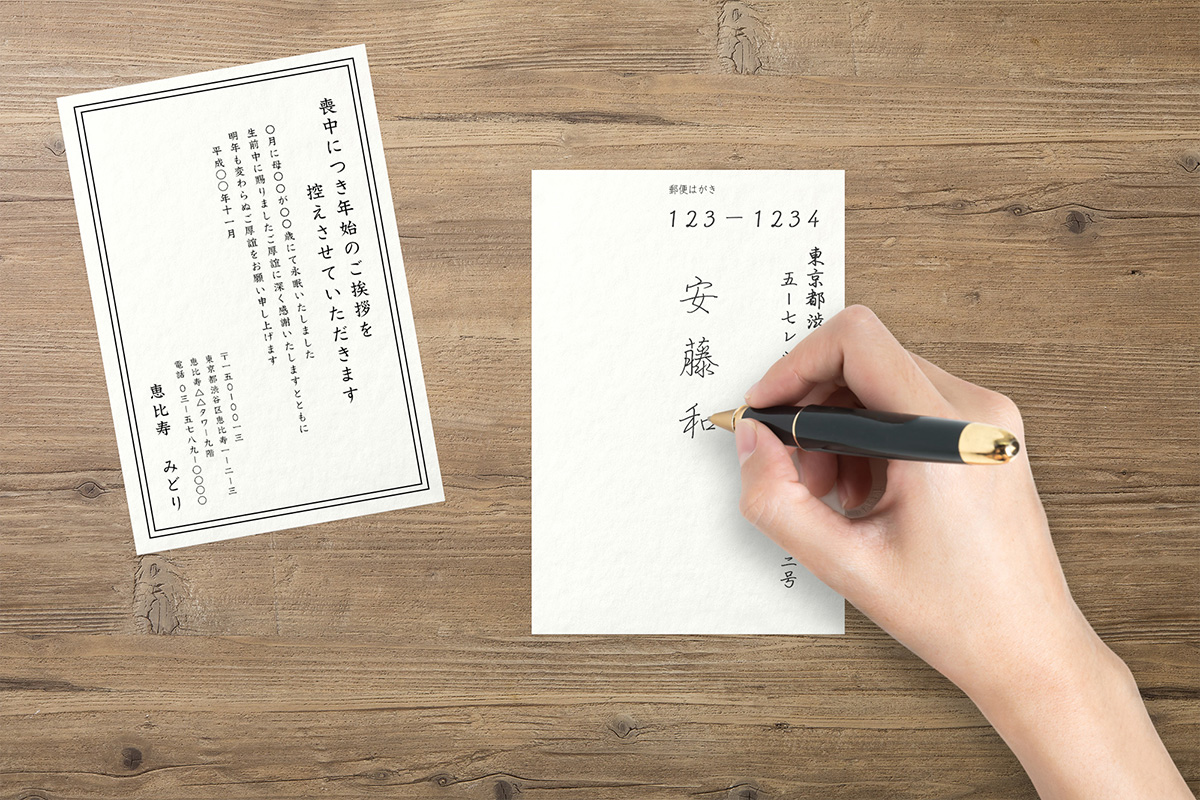 喪中につき年始のご挨拶を
控えさせていただきます
〇月に母〇〇が〇〇歳にて永眠いたしました
生前中に賜りましたご厚誼に深く感謝いたしますとともに
明年も変わらぬご厚誼をお願い申し上げます
平成〇〇年十一月
〒一五〇-〇〇一三
東京都渋谷区恵比寿一-二-三
恵比寿△△タワー九階
電話 〇三-五七八九-〇〇〇〇
恵比寿 みどり
郵便はがき
123-1234
東京都渋
五-七レ
二号
安藤和